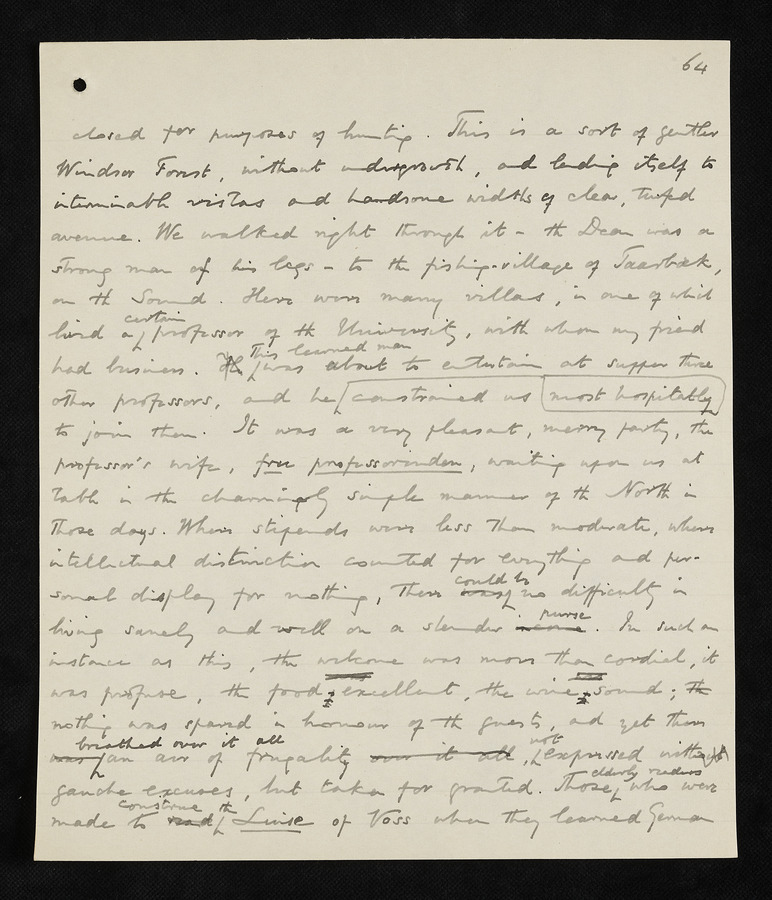 64
closed for purposes of hunting. This is a sort of gentler
Windsor Forest, without undergrowth, and lending itself to
interminable vistas and handsome widths of clear, turfed
avenue. We walked right through it – the Dean was a
strong man of his legs – to the fishing-village of Taarbæk,
on the Sound. Here were many villas, in one of which
certain
lived a professor of the University, with whom my friend
This learned man
had business. He was about to entertain at supper three
other professors, and he constrained us most hospitably
to join them. It was a very pleasant, merry party, the
professor's wife, fru professorinden, waiting upon us at
table in the charmingly simple manner of the North in
those days. Where stipends were less than moderate, where
intellectual distinction counted for everything and per-
could be
sonal display for nothing, there was no difficulty in
purse
living sanely and well on a slender . In such an
instance as this, the welcome was more than cordial, it
was profuse, the food excellent, the wine sound; the
nothing was spared in honour of the guests, and yet there
breathed over it all not
was an air of frugality over it all, expressed without
elderly readers
gauche excuses, but taken for granted. Those who were
construe the
made to read Luise of Voss when they learned German